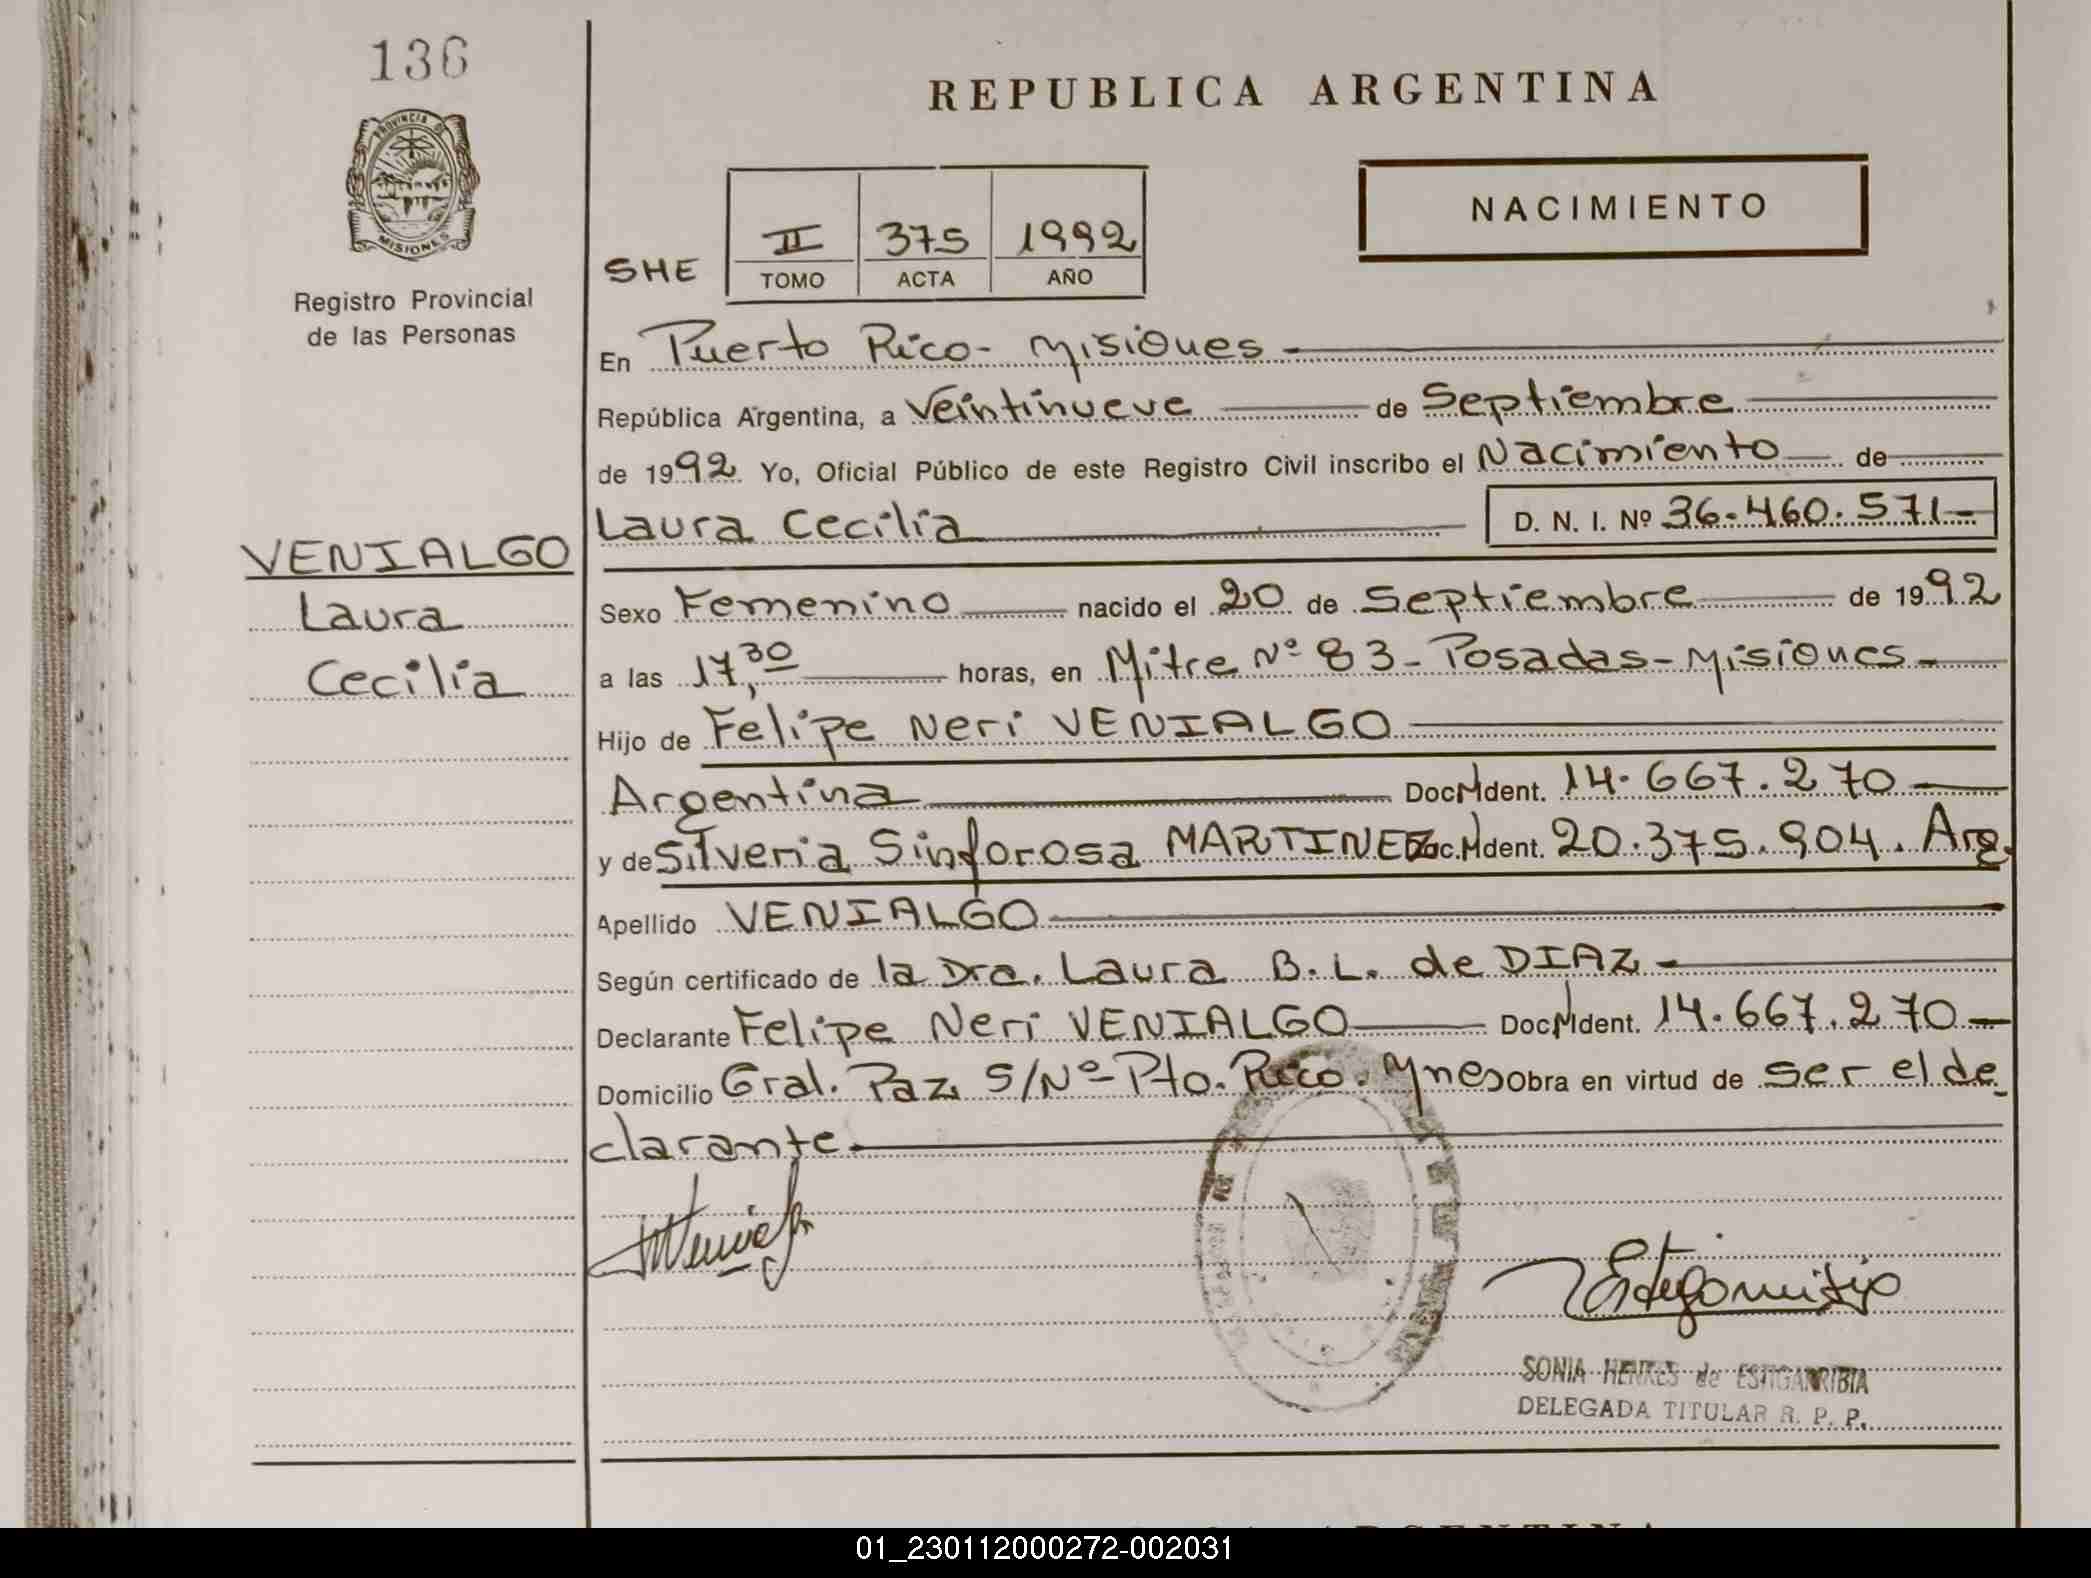 136
PROVINCIA DE
MISIONES
Registro Provincial
de las Personas
VENIALGO
Laura
Cecilia
REPUBLICA ARGENTINA
NACIMIENTO
SHE
II 375 1992
TOMO ACTA AÑO
En Puerto Rico - Misiones
República Argentina, a Veintinueve de Septiembre
de 1992 Yo, Oficial Público de este Registro Civil inscribo el Nacimiento de
Laura Cecilia D. N. I. Nº 36.460.571-
Sexo Femenino nacido el 20 de Septiembre de 1992
a las 17,30 horas, en Mitre Nº 83 - Posadas - Misiones -
Hijo de Felipe Neri VENIALGO
Argentina Doc. Ident. 14.667.270
y de Silveria Sinforosa MARTINEZ Doc. Ident. 20.375.904. Arg.
Apellido VENIALGO
Según certificado de la Dra. Laura B. L. de DIAZ -
Declarante Felipe Neri VENIALGO Doc. Ident. 14.667.270 -
Domicilio Gral. Paz S/Nº - Pto. Rico. Mnes Obra en virtud de ser el de
clarante.
SONIA HENKES de ESTIGARRIBIA
DELEGADA TITULAR R. P. P.
01_230112000272-002031